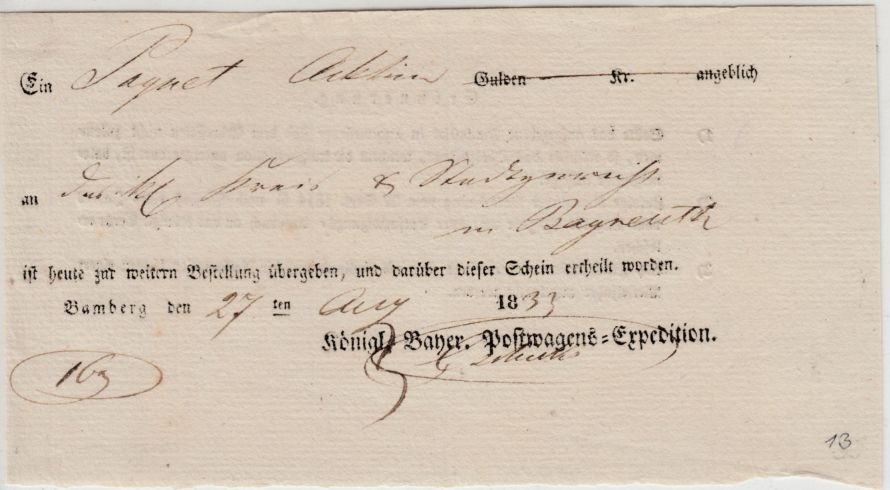 Ein Paquet Akten Gulden Kr. angeblich
an das kgl Kreis & Stadtgericht
in Bayreuth
ist heute zur weitern Bestellung übergeben, und darüber dieser Schein ertheilt worden.
Bamberg den 27 ten Aug 1833
Königl. Bayer. Postwagens=Expedition.
13